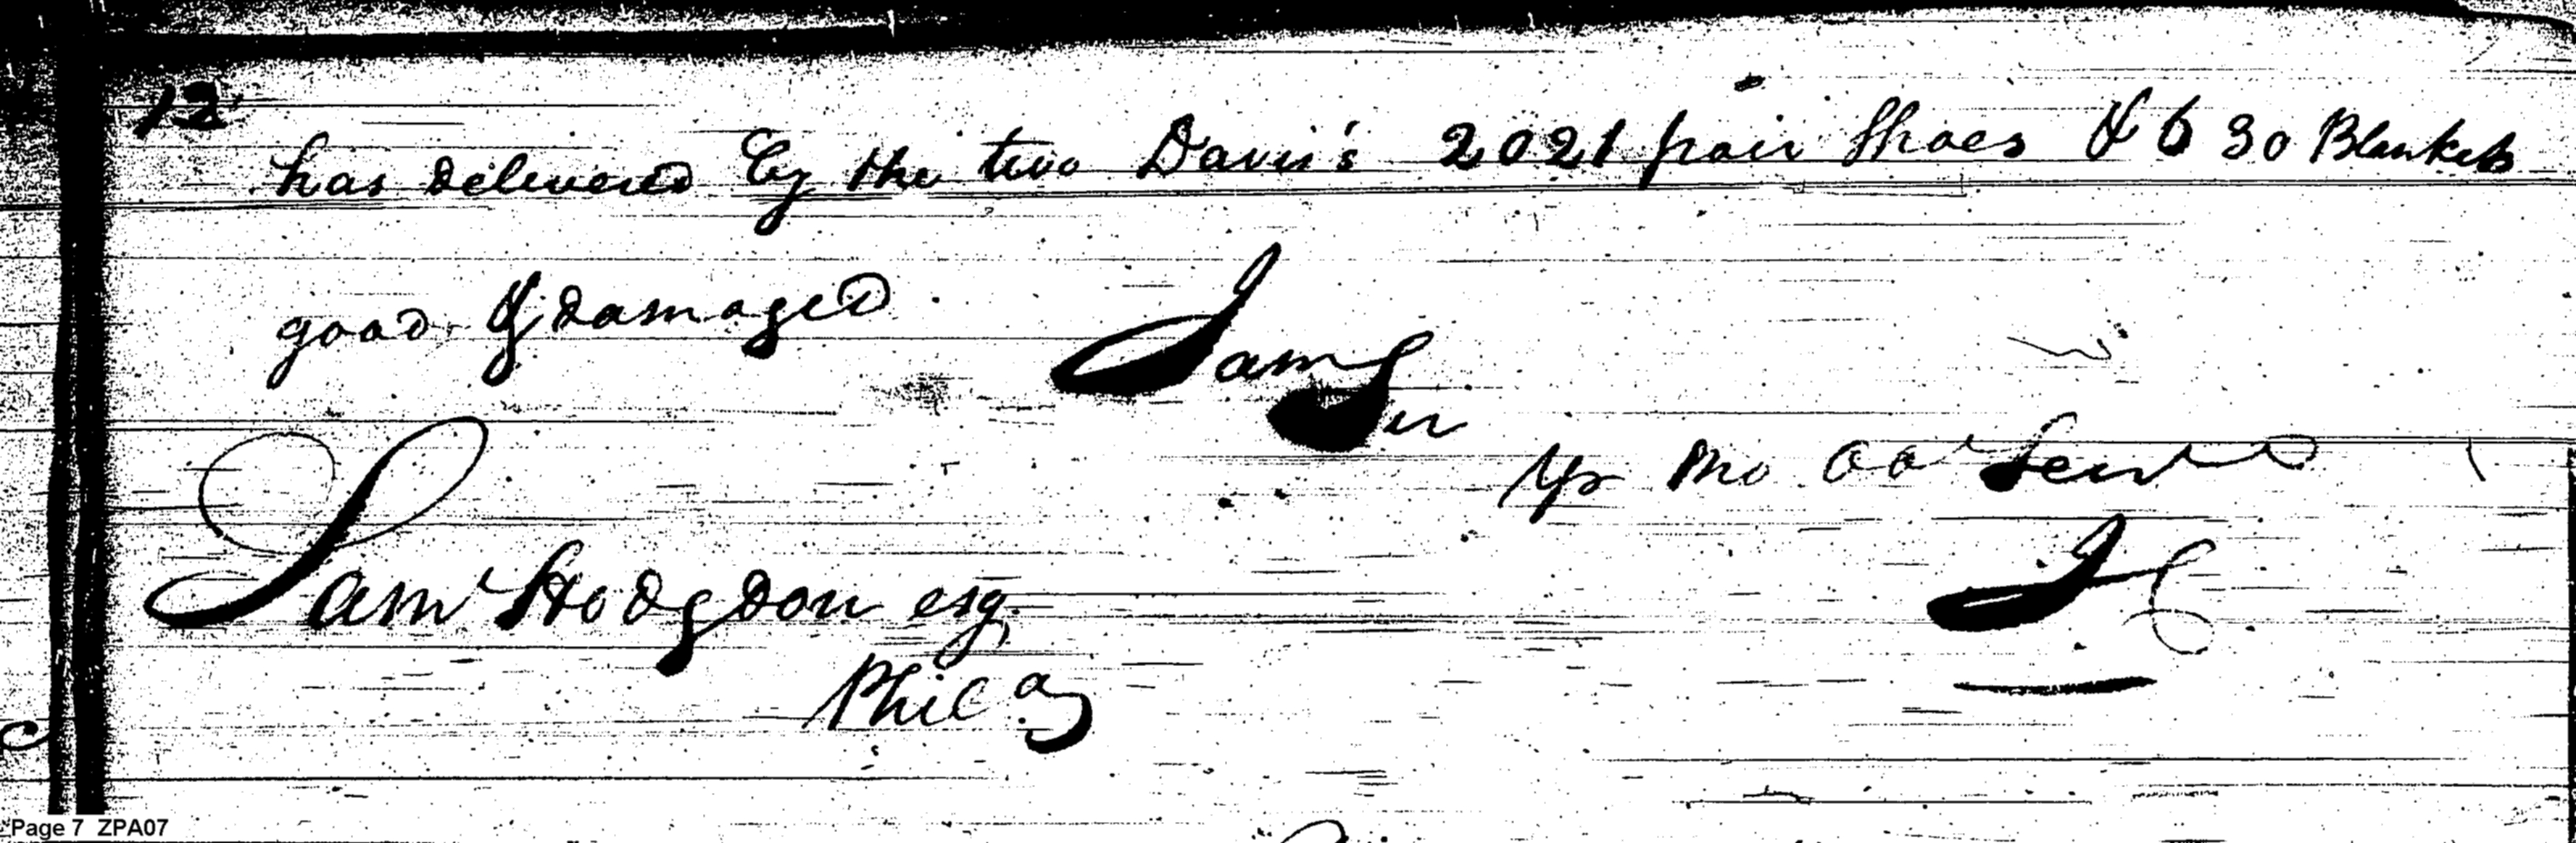 12
has delivered by the two Davis's 2021 pair Shoes & 630 Blankets
good & damaged.
I am Sir
Yr Mo Ob Serv
Saml Hodgdon esq
Phila
Page 7 ZPA07